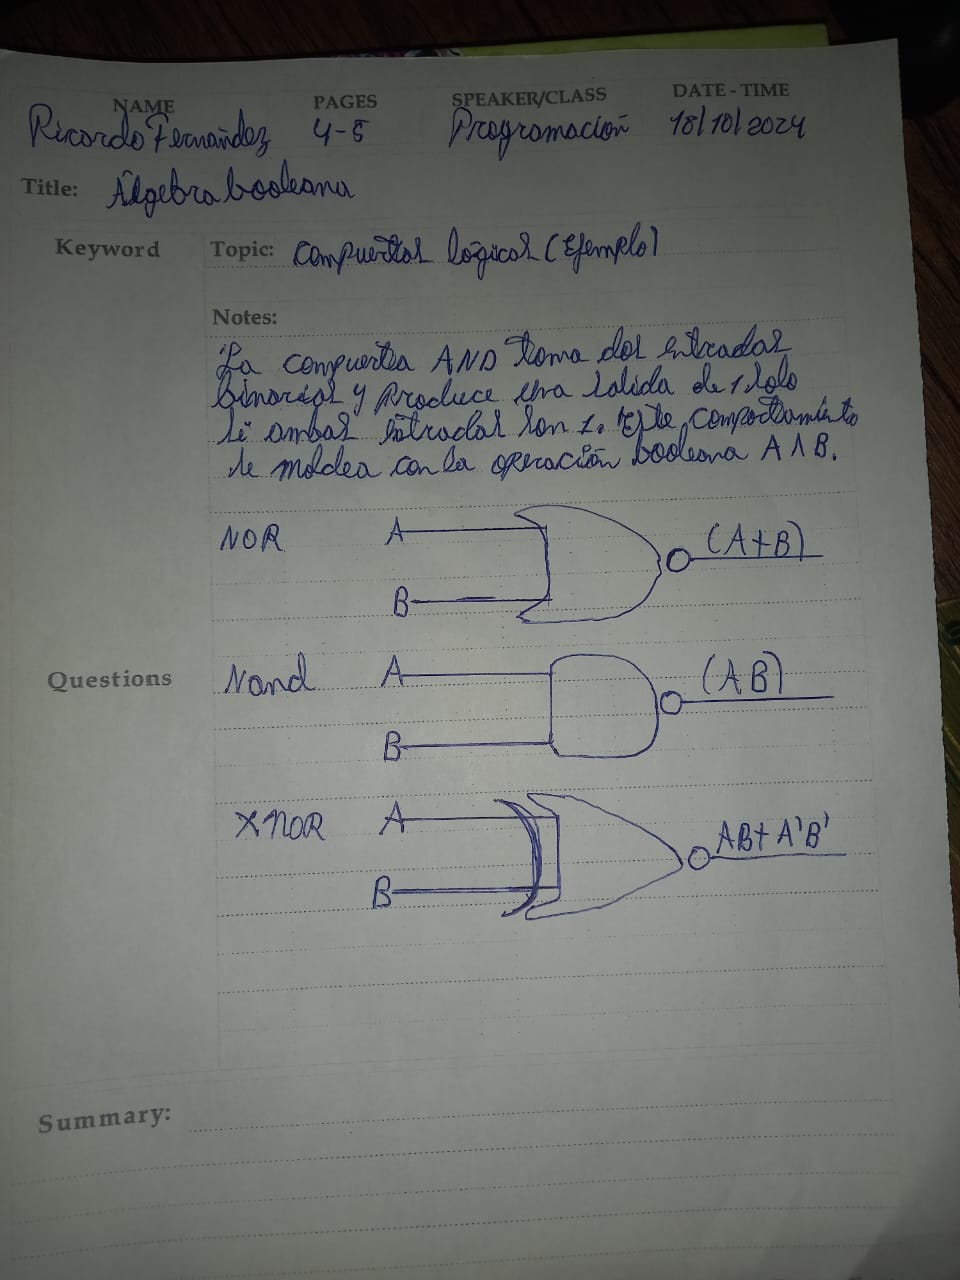 NAME PAGES SPEAKER/CLASS DATE - TIME
Ricardo Fernández 4-5 Programación 18/10/2024
Title: Álgebra booleana
Keyword Topic: Compuertas lógicas (Ejemplo)
Notes:
La compuerta AND toma dos entradas
binarias y Produce una salida de 1 solo
si ambas entradas son 1. Este comportamiento
se moldea con la operación booleana A ∧ B.
NOR A (A+B)
B
Questions Nand A (AB)
B
XNOR A AB+A'B'
B
Summary: